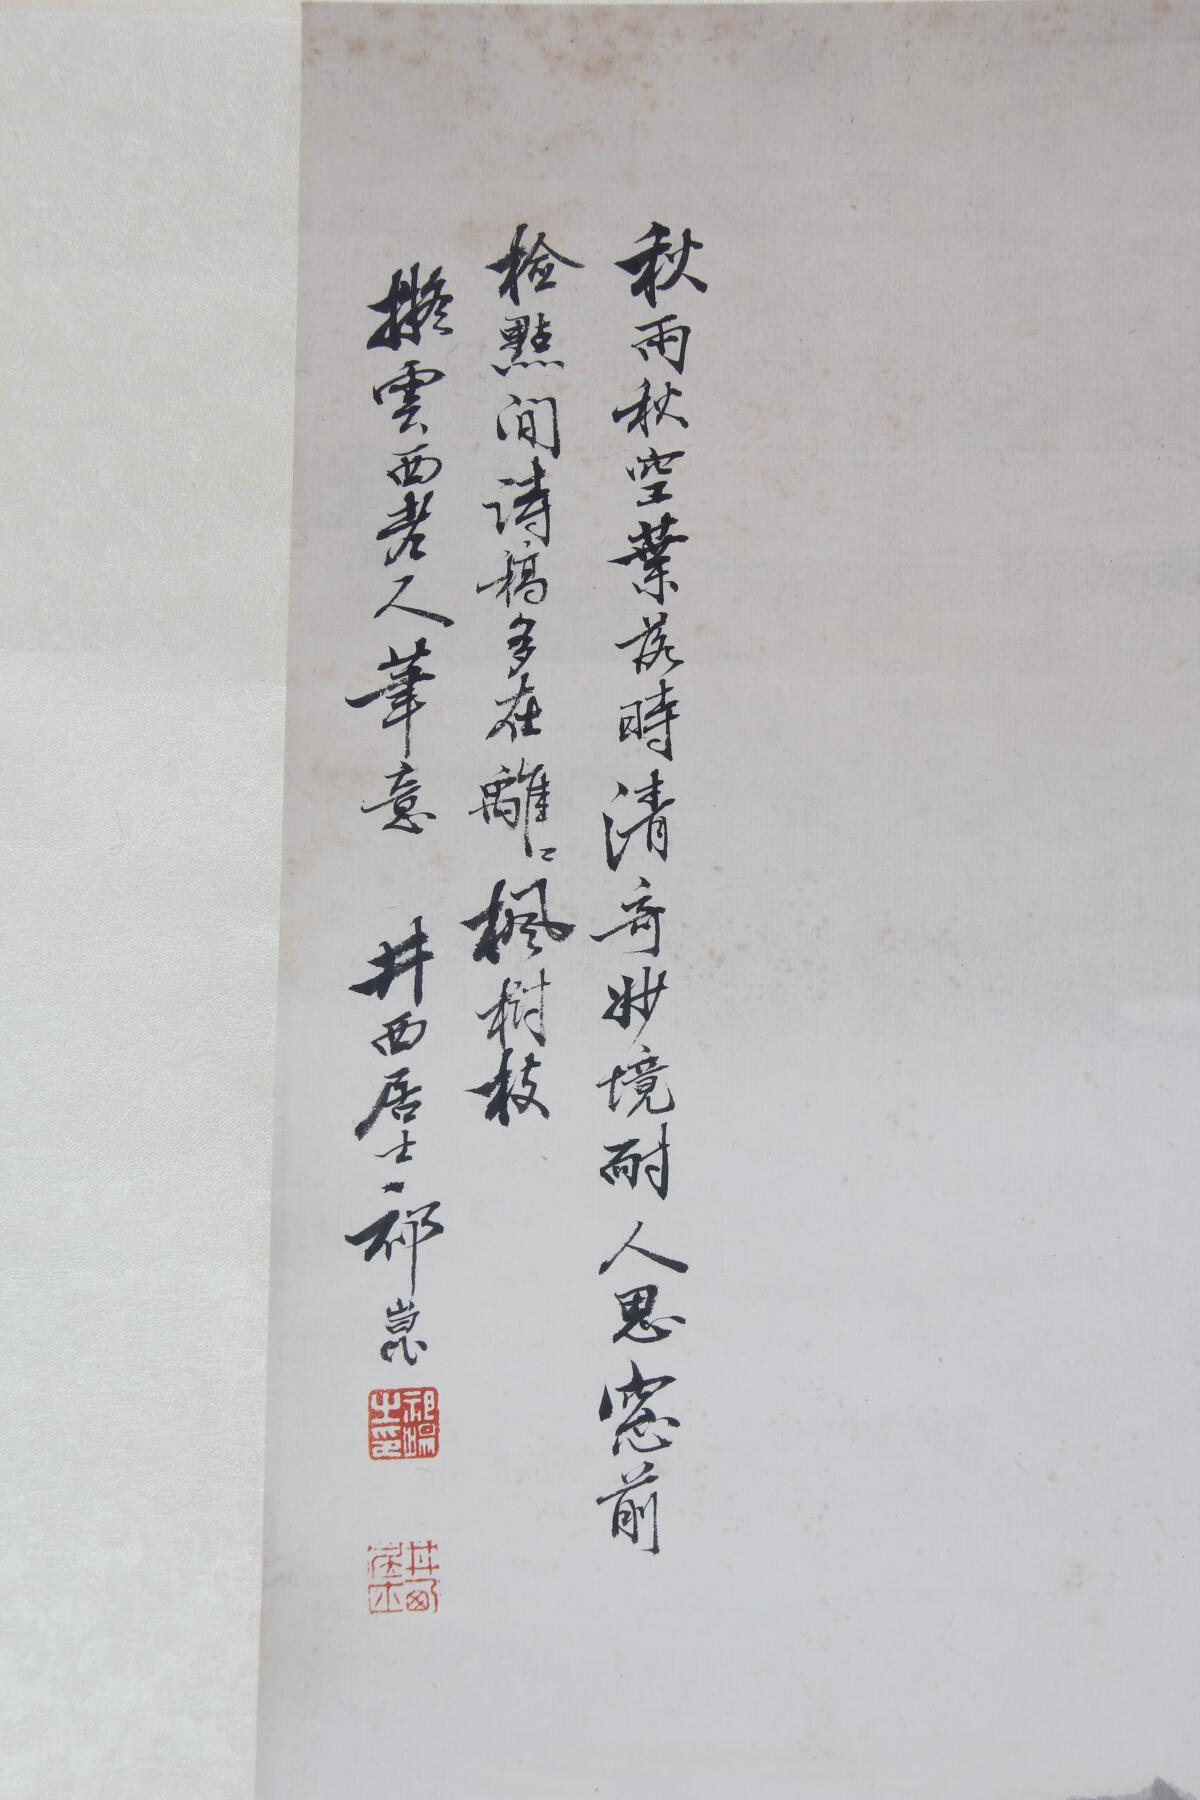 秋雨秋空葉落時清奇妙境耐人思窓前
檢點閒詩稿多在離〻楓樹枝
擬雲西老人筆意 井西居士祁崑
祁崑之印
井西居士